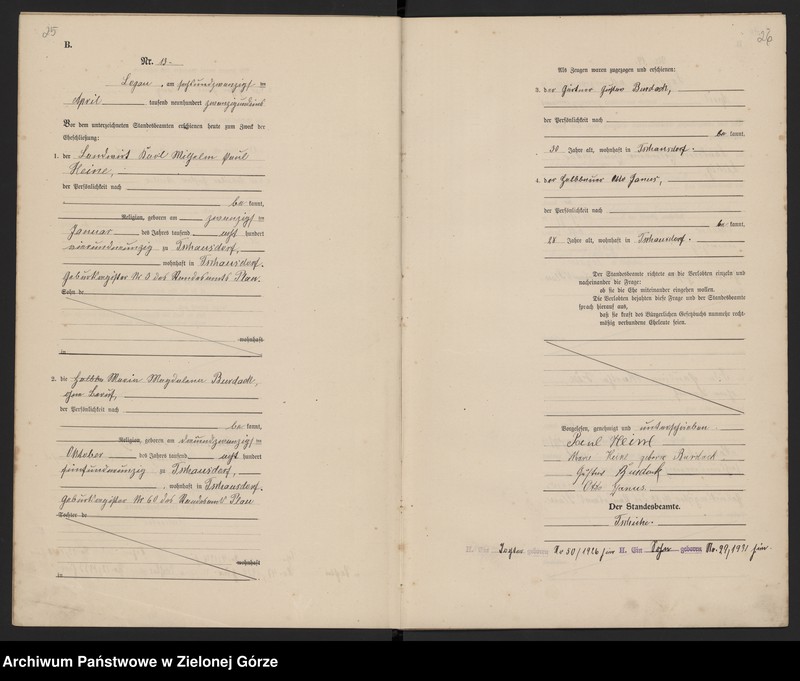 25
B.
Nr. 13.
Logau, am sechsundzwanzigsten
April tausend neunhundert zwanzigundeins
Vor dem unterzeichneten Standesbeamten erschienen heute zum Zweck der
Eheschließung:
1. der Landwirt Karl Wilhelm Paul
Heine,
der Persönlichkeit nach
be kannt,
Religion, geboren am zwanzigsten
Januar des Jahres tausend acht hundert
vierundneunzig zu Tschausdorf,
wohnhaft in Tschausdorf.
Geburtsregister Nr des Standesamts Plau.
Sohn de
wohnhaft
in
2. die Maria Magdalena Burdack,
ohne Beruf,
der Persönlichkeit nach
be kannt,
Religion, geboren am dreiundzwanzigsten
Oktober des Jahres tausend acht hundert
fünfundneunzig zu Tschausdorf,
, wohnhaft in Tschausdorf.
Geburtsregister Nr. 60 des Standesamts Plau
Tochter de
wohnhaft
in
26
Als Zeugen waren zugezogen und erschienen:
3. der Gärtner Gustav Burdack,
der Persönlichkeit nach
be kannt,
30 Jahre alt, wohnhaft in Tschausdorf.
4. der Halbbauer Otto Janus,
der Persönlichkeit nach
be kannt,
28 Jahre alt, wohnhaft in Tschausdorf.
Der Standesbeamte richtete an die Verlobten einzeln und
nacheinander die Frage:
ob sie die Ehe miteinander eingehen wollen.
Die Verlobten bejahten diese Frage und der Standesbeamte
sprach hierauf aus,
daß sie kraft des Bürgerlichen Gesetzbuchs nunmehr recht-
mäßig verbundene Eheleute seien.
Vorgelesen, genehmigt und unterschrieben
Paul Heine
Marie Heine geborne Burdack
Gustav Burdack
Otto Janus.
Der Standesbeamte.
Tschicke.
II. Ein Tochter geboren Nr 50/1926 hier II. Ein Sohn geboren No. 29/1931 hier.
Archiwum Państwowe w Zielonej Górze